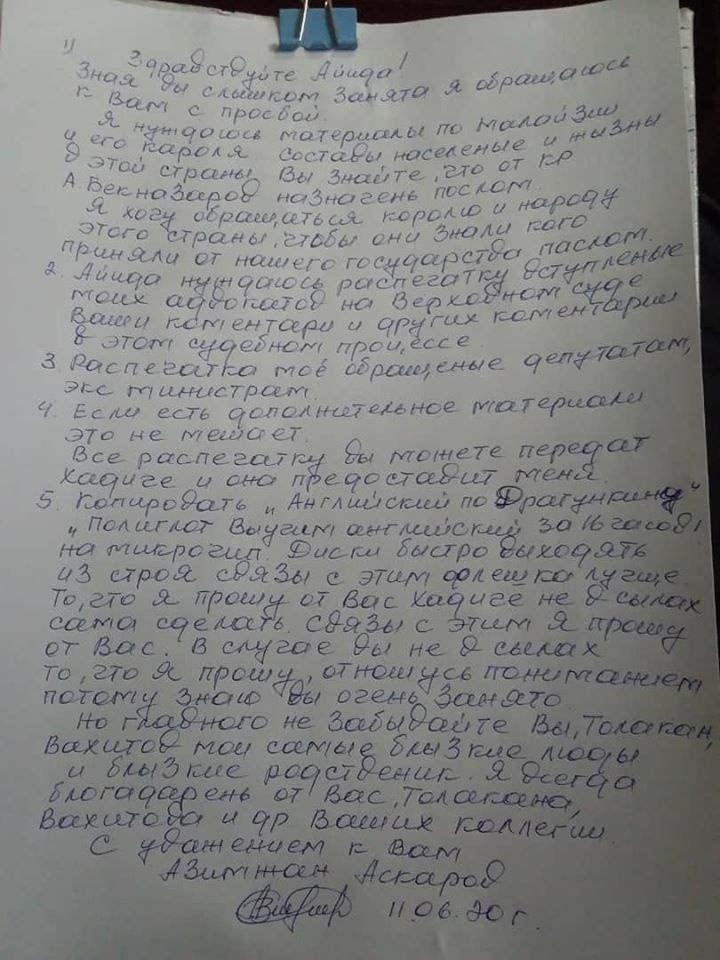 1) Здравствуйте Айида!
Зная вы слышком занята я обращаюсь
к Вам с просбой.
Я нуждаюсь материалы по малайзии
и его кароля составы населеные и жызны
в этой страны. Вы знайте, что от КР
А. Бекназаров назначень послом.
Я хочу обращаться королю и народу
этого страны, чтобы они знали кого
приняли от нашего государства паслом.
2. Айида нуждаюсь распечатку вступленые
моих адвокатов на Верховном суде
Ваши коментари и других коментарии
в этом судебном процессе.
3. Распечатка моё обращеные депутатам,
экс министрам.
4. Если есть дополнительное материали
это не мешает.
Все распечатку вы можете передат
Хадиче и она предоставит меня.
5. Копировать „Английский по Драгункину"
„Полиглот Выучим английский за 16 часов!
на микрочип. Диски быстро выходять
из строя связы с этим флешка лучще.
То, что я прошу от Вас Хадиче не в сылах
сама сделать. Связы с этим я прошу
от Вас. В случае вы не в сылах
то, что я прошу, отношусь пониманием
потому знаю вы очень занято.
Но главного не забывайте Вы, Толакан,
Вахитов мои самые блызкие люды
и блызкие родственик. Я всегда
блогадарень от Вас, Толакана,
Вахитова и др Ваших коллегии.
С уважением к Вам
Азимжан Аскаров
11.06.20 г.